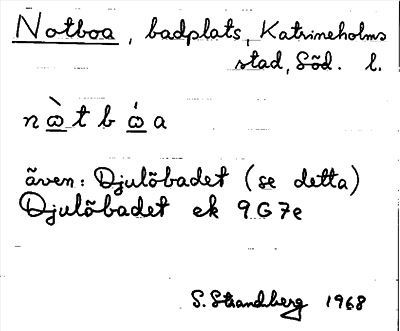 Notboa, badplats, Katrineholms
stad, Söd. l.
nὼtbώa
även: Djulöbadet (se detta)
Djulöbadet ek 9G7e
S. Strandberg 1968